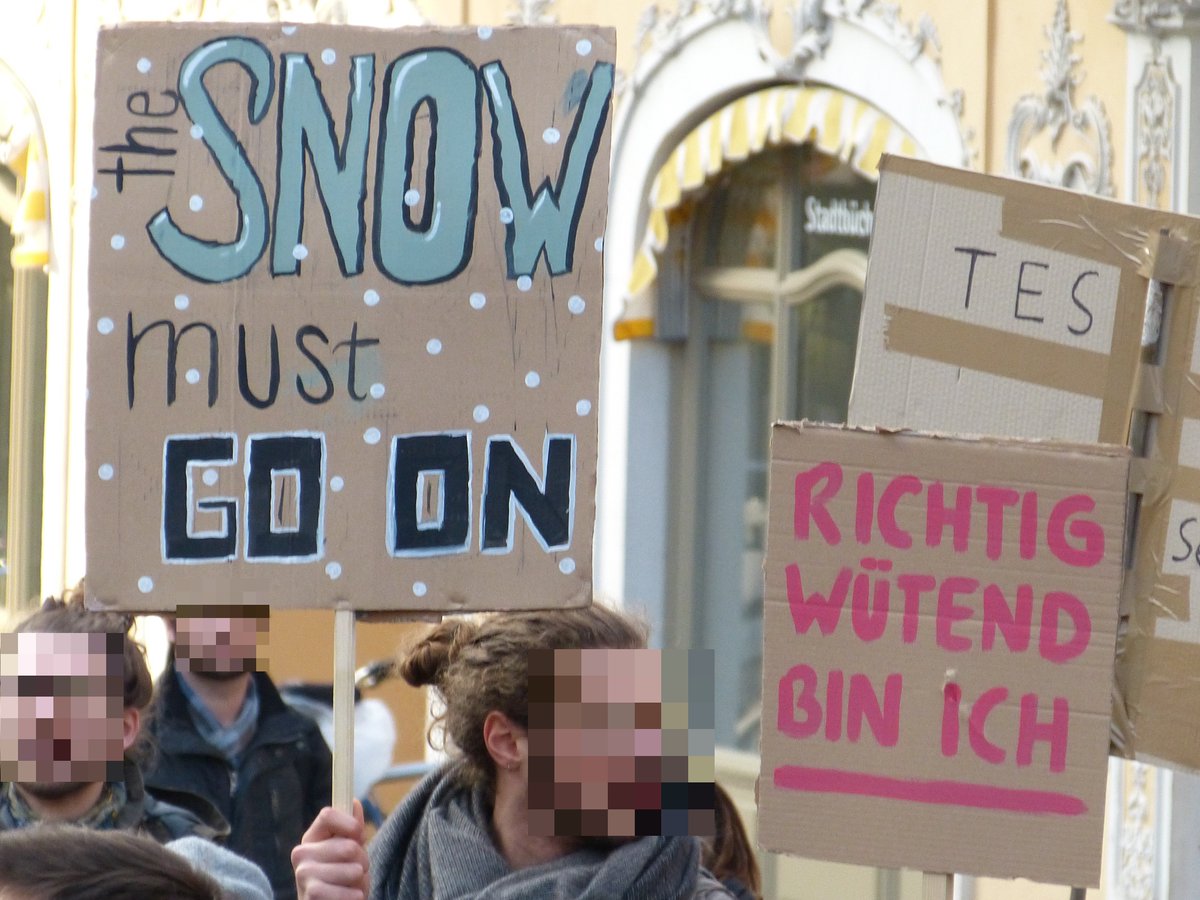 the SNOW
must
GO ON
Stadtbüch
TES
RICHTIG
WÜTEND
BIN ICH